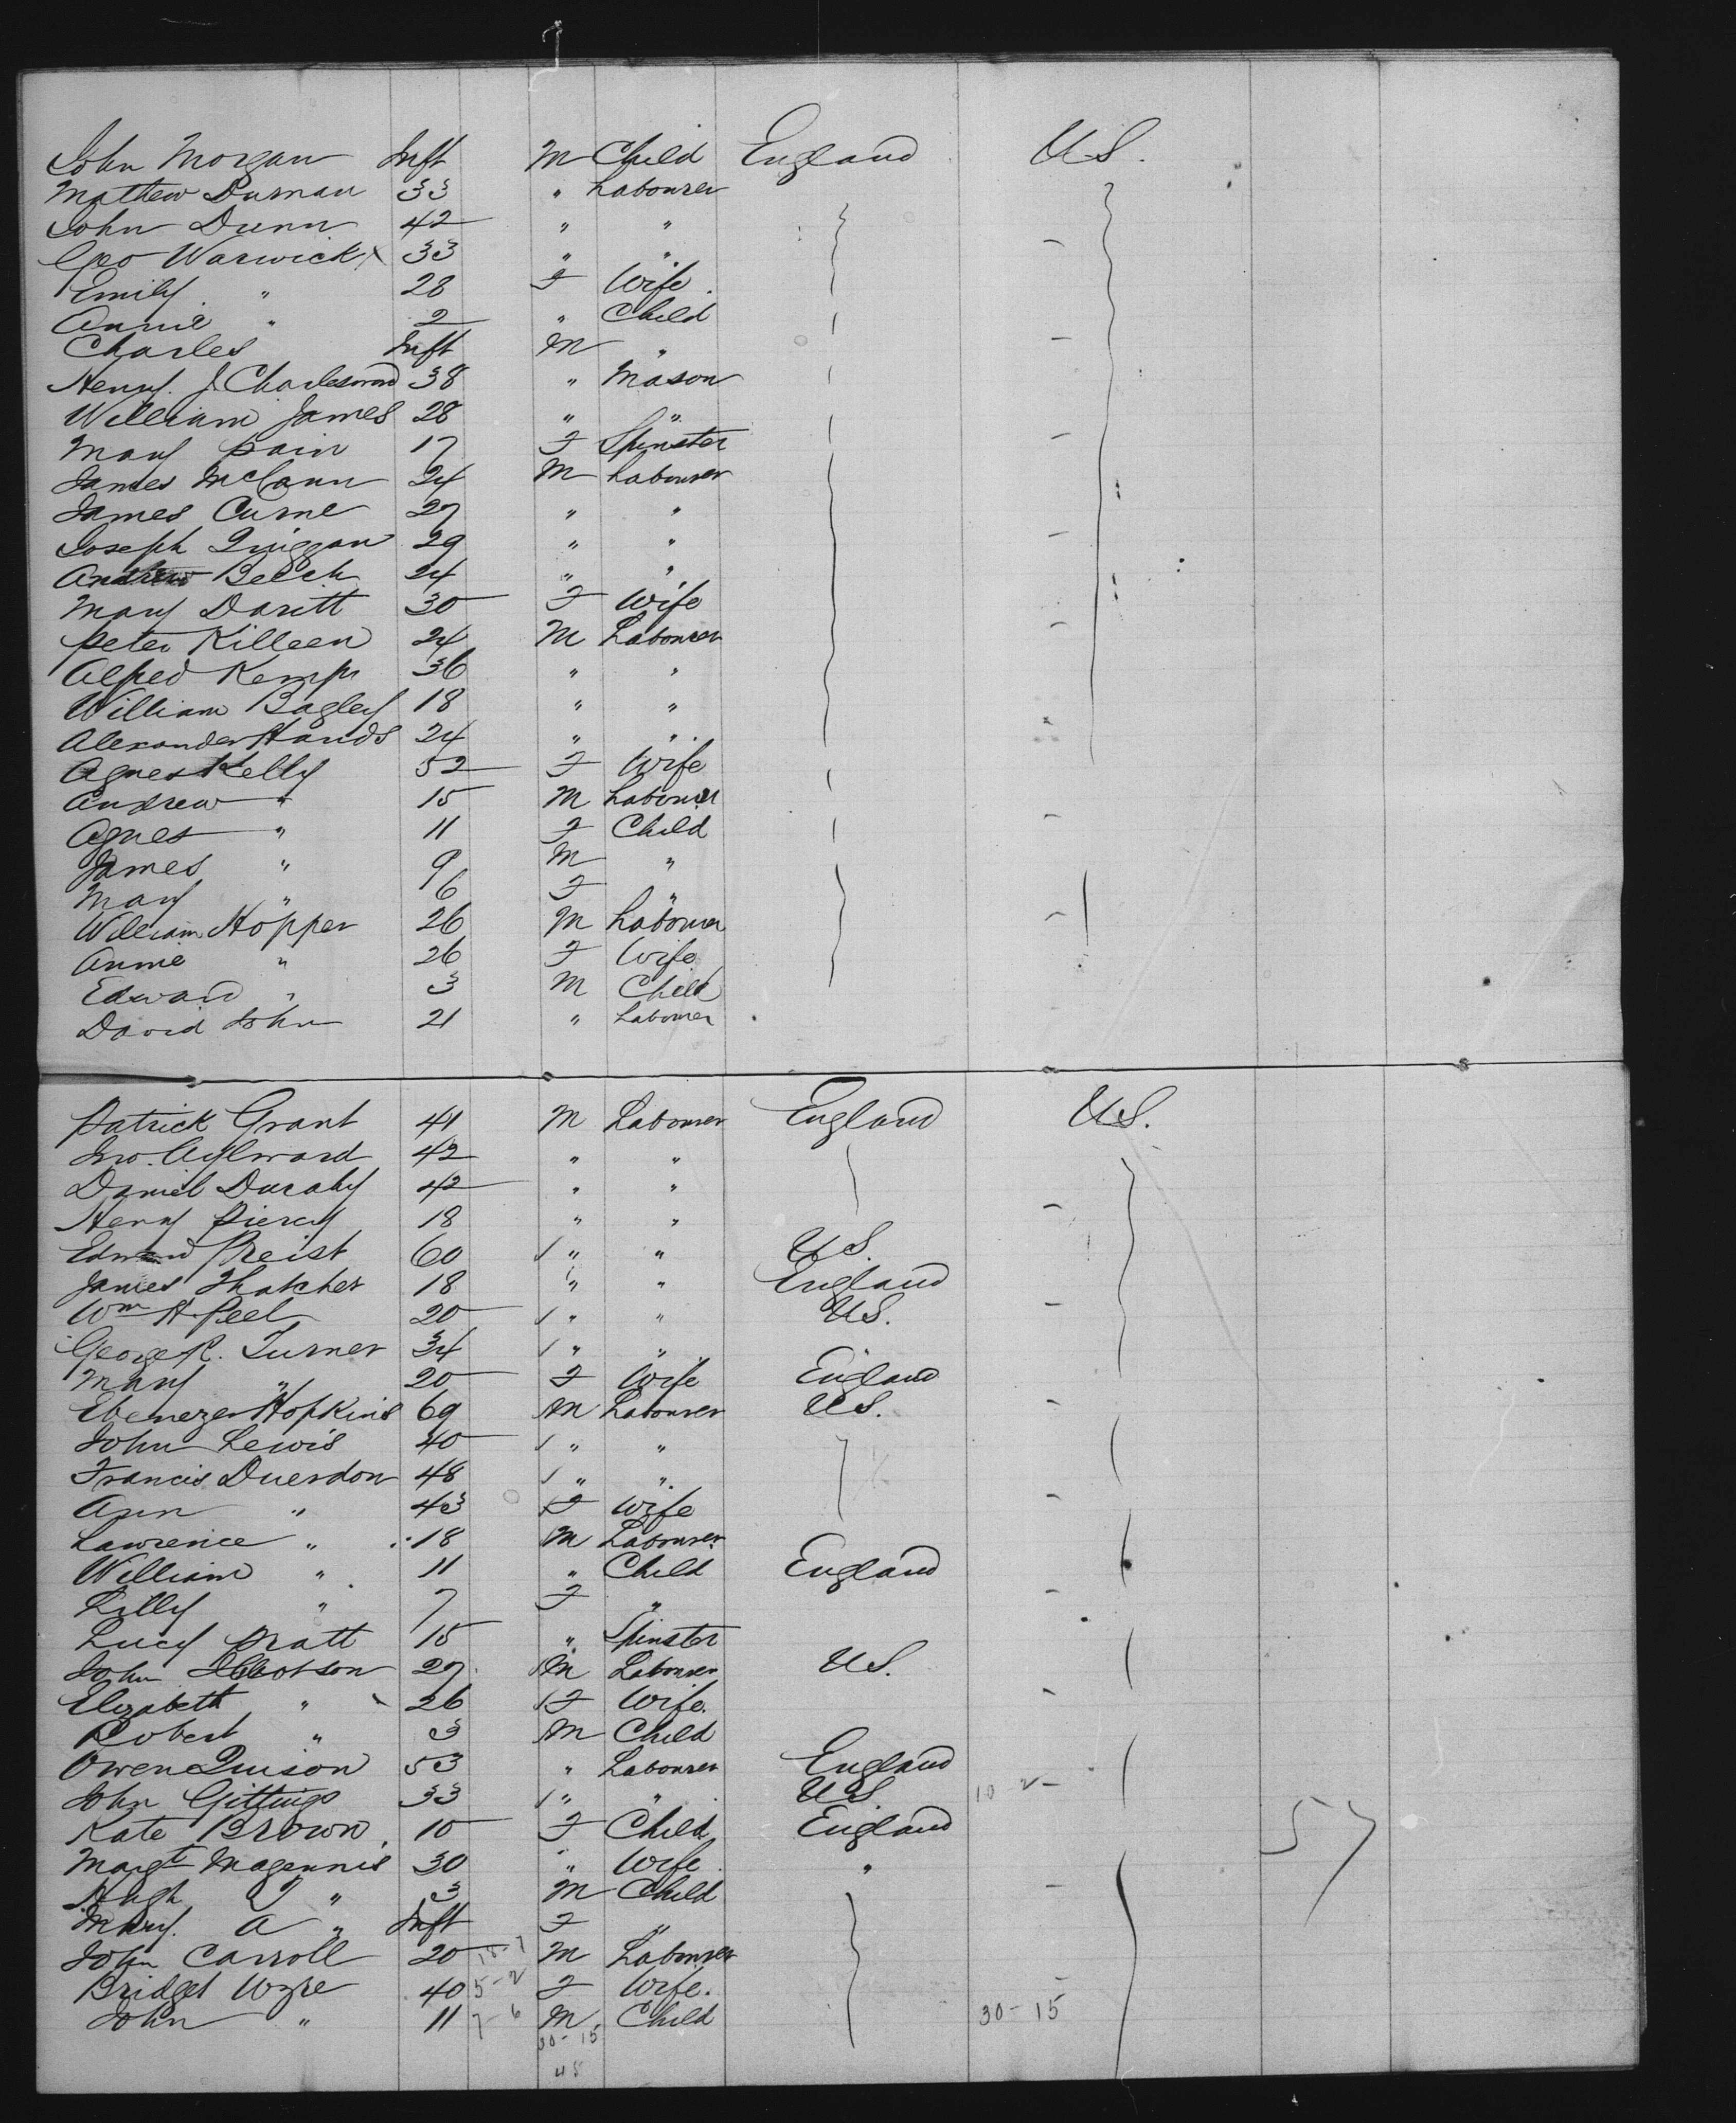 John Morgan Inft M Child England U.S.
Matthew Durnan 33 " Labourer
John Dunn 42 " "
Geo Warwick 33 " "
Emily " 28 F Wife
Annie " 2 " Child
Charles Inft M "
Henry J. Charlesword 38 " Mason
William James 28 " "
Mary Pain 17 F Spinster
James McCann 24 M Labourer
James Curne 27 " "
Joseph Quiggan 29 " "
Andrew Beech 24 " "
Mary Daritt 30 F Wife
Peter Killeen 24 M Labourer
Alfred Kemp 36 " "
William Bagley 18 " "
Alexander Hands 24 " "
Agnes Kelly 52 F Wife
Andrew " 15 M Labourer
Agnes " 11 F Child
James " 9 M "
Mary " 6 F "
William Hopper 26 M Labourer
Annie " 26 F Wife
Edward " 3 M Child
David John 21 " Labourer
Patrick Grant 41 M Labourer England U.S.
Jno. Aylward 42 " "
Daniel Durahy 42 " "
Henry Piercy 18 " "
Edward Preist 60 " " U.S.
James Thatcher 18 " " England
Wm H. Peel 20 " " U.S.
George R. Turner 34 " "
Mary " 20 F Wife England
Ebenezer Hopkins 69 M Labourer U.S.
John Lewis 40 " "
Francis Duerdon 48 " "
Ann " 43 F Wife
Lawrence " 18 M Labourer
William " 11 " Child England
Lilly " 7 F "
Lucy Pratt 15 " Spinster
John 27 M Labourer U.S.
Elizabeth " 26 F Wife
Robert " 3 M Child
Owen Quison 53 " Labourer England
John Gittings 33 " " U.S. 10 2-
Kate Brown 10 F Child England
Margt Magennis 30 " Wife " 57
Hugh " 3 M Child
Mary A " Inft F "
John Carroll 20 M Labourer
Bridget Wyre 40 5-2 F Wife
John " 11 7-6 M Child 30-15
30-15
45